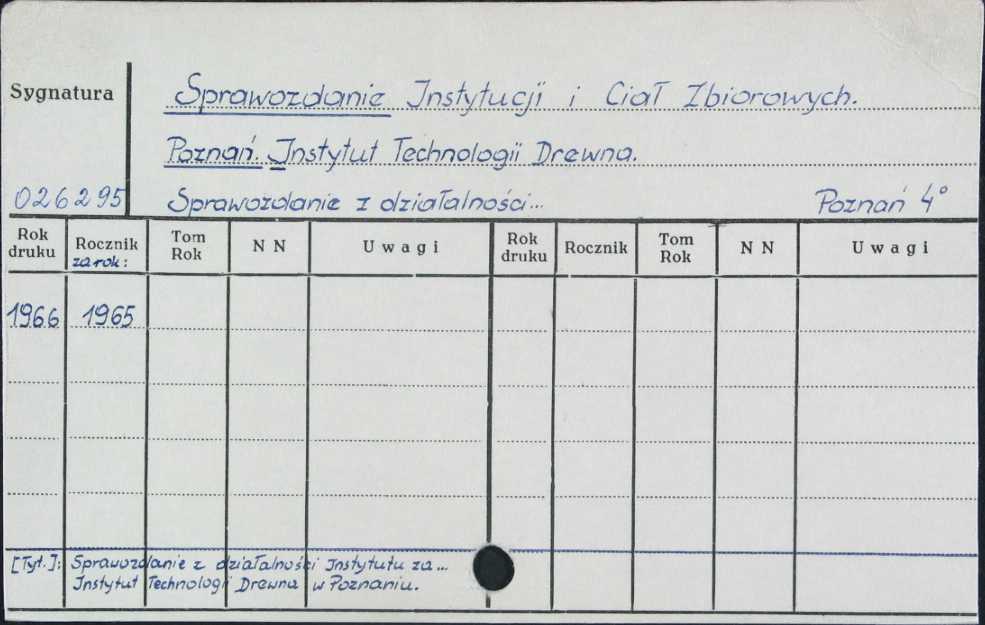 Sygnatura
Sprawozdanie Instytucji i Ciał Zbiorowych.
Poznań. Instytut Technologii Drewna.
026295 Sprawozdanie z działalności... Poznań 4°
Rok druku Rocznik za rok: Tom Rok N N Uwagi Rok druku Rocznik Tom Rok N N Uwagi
1966 1965
[Tyt.]: Sprawozdanie z działalności Instytutu za...
Instytut Technologii Drewna w Poznaniu.